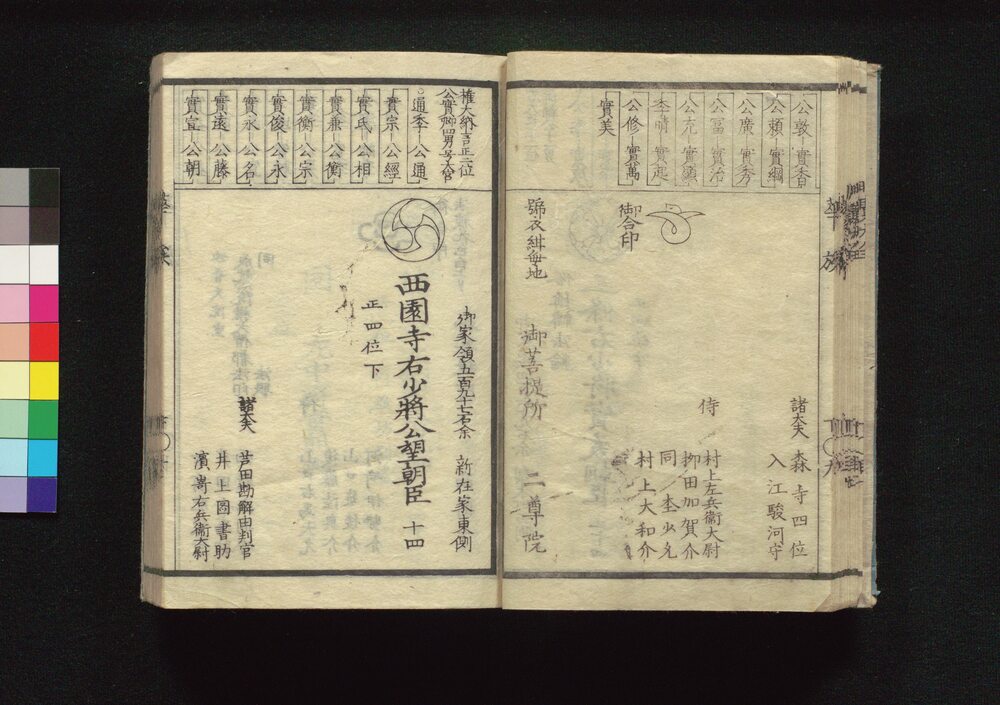 公敦 實香
公頼 實綱
公廣 實秀
公冨 實治
公充 實顕
季晴 實起
公修 實萬
實美
諸大夫 森寺四位
入江駿河守
侍
村上左兵衛大尉
柳田加賀介
同 杢少允
村上大和介
御合印
號衣紺無地
御菩提所 二尊院
權大納言正二位
公實卿四男号大宮
通季 公通
實宗 公經
實氏 公相
實兼 公衡
實衡 公宗
實俊 公永
實永 公名
實遠 公藤
實宣 公朝
御家領五百九十七石余 新在家東側
西園寺右少將公望朝臣 十四
正四位下
諸大夫 芦田勘解由判官
井上圖書助
濱嵜右兵衛大尉
華族